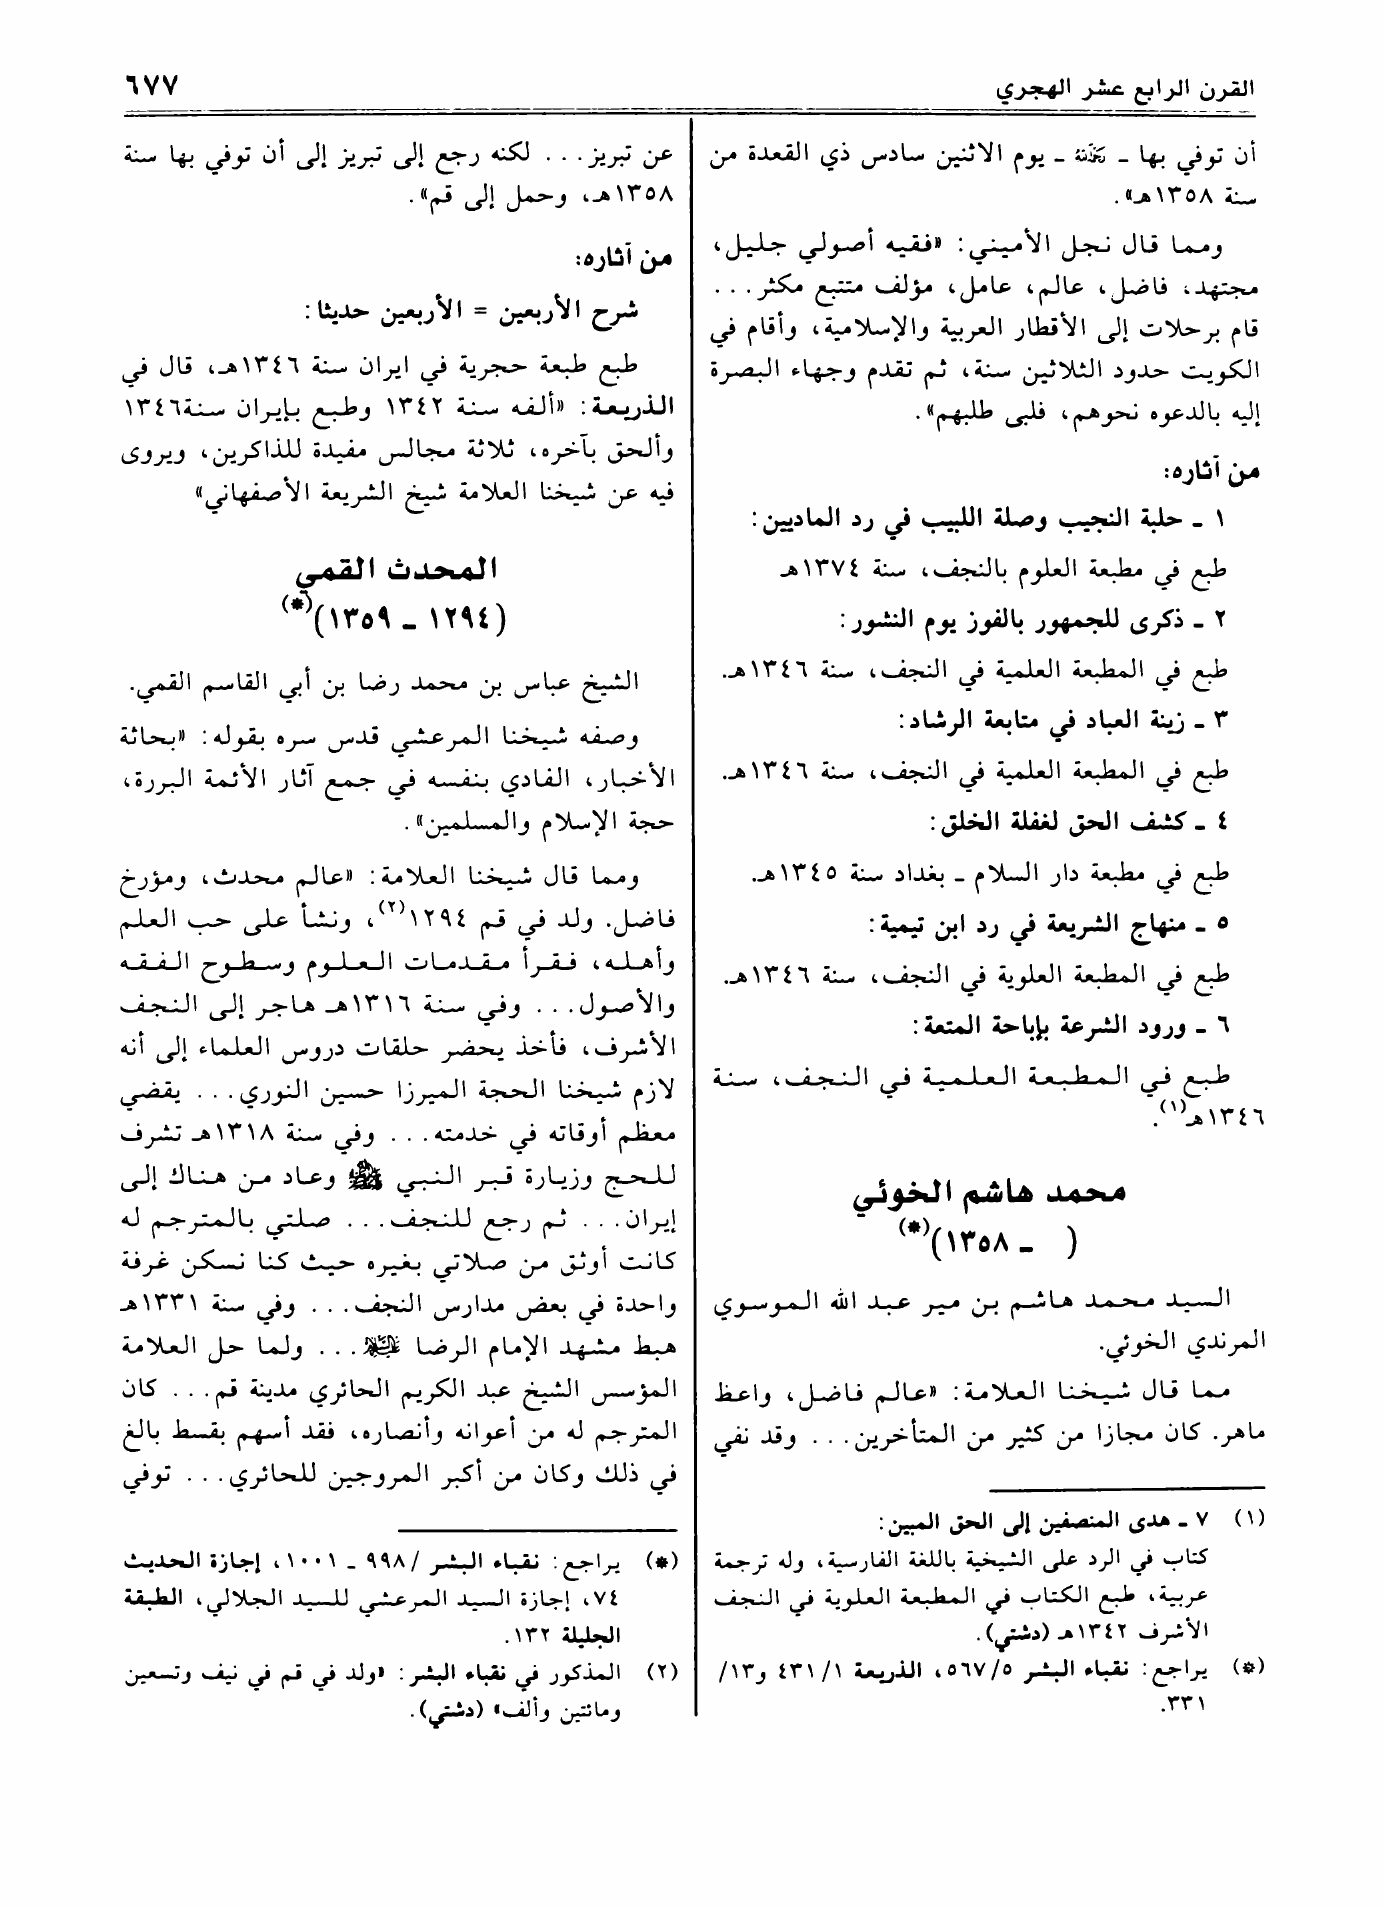 القرن الرابع عشر الهجري
٦٧٧
أن توفي بها ـ رَحِمَهُ اللهُ ـ يوم الاثنين سادس ذي القعدة من
سنة ١٣٥٨هـ».
ومما قال نجل الأميني: «فقيه أصولي جليل،
مجتهد، فاضل، عالم، عامل، مؤلف متتبع مكثر...
قام برحلات إلى الأقطار العربية والإسلامية، وأقام في
الكويت حدود الثلاثين سنة، ثم تقدم وجهاء البصرة
إليه بالدعوه نحوهم، فلبى طلبهم».
من آثاره:
١ ـ حلبة النجيب وصلة اللبيب في رد الماديين:
طبع في مطبعة العلوم بالنجف، سنة ١٣٧٤هـ
٢ ـ ذكرى للجمهور بالفوز يوم النشور:
طبع في المطبعة العلمية في النجف، سنة ١٣٤٦هـ.
٣ ـ زينة العباد في متابعة الرشاد:
طبع في المطبعة العلمية في النجف، سنة ١٣٤٦هـ.
٤ ـ كشف الحق لغفلة الخلق:
طبع في مطبعة دار السلام ـ بغداد سنة ١٣٤٥هـ.
٥ ـ منهاج الشريعة في رد ابن تيمية:
طبع في المطبعة العلوية في النجف، سنة ١٣٤٦هـ.
٦ ـ ورود الشرعة بإباحة المتعة:
طبع في المطبعة العلمية في النجف، سنة
١٣٤٦هـ(١).
محمد هاشم الخوئي
( ـ ١٣٥٨)(*)
السيد محمد هاشم بن مير عبد الله الموسوي
المرندي الخوئي.
مما قال شيخنا العلامة: «عالم فاضل، واعظ
ماهر. كان مجازا من كثير من المتأخرين... وقد نفي
(١) ٧ ـ هدى المنصفين إلى الحق المبين:
كتاب في الرد على الشيخية باللغة الفارسية، وله ترجمة
عربية، طبع الكتاب في المطبعة العلوية في النجف
الأشرف ١٣٤٢هـ (دشتي).
(*) يراجع: نقباء البشر ٥/٥٦٧، الذريعة ١/٤٣١ و١٣/
٣٣١.
عن تبريز... لكنه رجع إلى تبريز إلى أن توفي بها سنة
١٣٥٨هـ، وحمل إلى قم».
من آثاره:
شرح الأربعين = الأربعين حديثا:
طبع طبعة حجرية في ايران سنة ١٣٤٦هـ، قال في
الذريعة: «ألفه سنة ١٣٤٢ وطبع بإيران سنة١٣٤٦
وألحق بآخره، ثلاثة مجالس مفيدة للذاكرين، ويروى
فيه عن شيخنا العلامة شيخ الشريعة الأصفهاني»
المحدث القمي
(١٢٩٤ ـ ١٣٥٩)(*)
الشيخ عباس بن محمد رضا بن أبي القاسم القمي.
وصفه شيخنا المرعشي قدس سره بقوله: «بحاثة
الأخبار، الفادي بنفسه في جمع آثار الأئمة البررة،
حجة الإسلام والمسلمين».
ومما قال شيخنا العلامة: «عالم محدث، ومؤرخ
فاضل. ولد في قم ١٢٩٤(٢)، ونشأ على حب العلم
وأهله، فقرأ مقدمات العلوم وسطوح الفقه
والأصول... وفي سنة ١٣١٦هـ هاجر إلى النجف
الأشرف، فأخذ يحضر حلقات دروس العلماء إلى أنه
لازم شيخنا الحجة الميرزا حسين النوري... يقضي
معظم أوقاته في خدمته... وفي سنة ١٣١٨هـ تشرف
للحج وزيارة قبر النبي ﷺ وعاد من هناك إلى
إيران... ثم رجع للنجف... صلتي بالمترجم له
كانت أوثق من صلاتي بغيره حيث كنا نسكن غرفة
واحدة في بعض مدارس النجف... وفي سنة ١٣٣١هـ
هبط مشهد الإمام الرضا عليه السلام... ولما حل العلامة
المؤسس الشيخ عبد الكريم الحائري مدينة قم... كان
المترجم له من أعوانه وأنصاره، فقد أسهم بقسط بالغ
في ذلك وكان من أكبر المروجين للحائري... توفي
(*) يراجع: نقباء البشر /٩٩٨ ـ ١٠٠١، إجازة الحديث
٧٤، إجازة السيد المرعشي للسيد الجلالي، الطبقة
الجليلة ١٣٢.
(٢) المذكور في نقباء البشر: «ولد في قم في نيف وتسعين
ومائتين وألف» (دشتي).